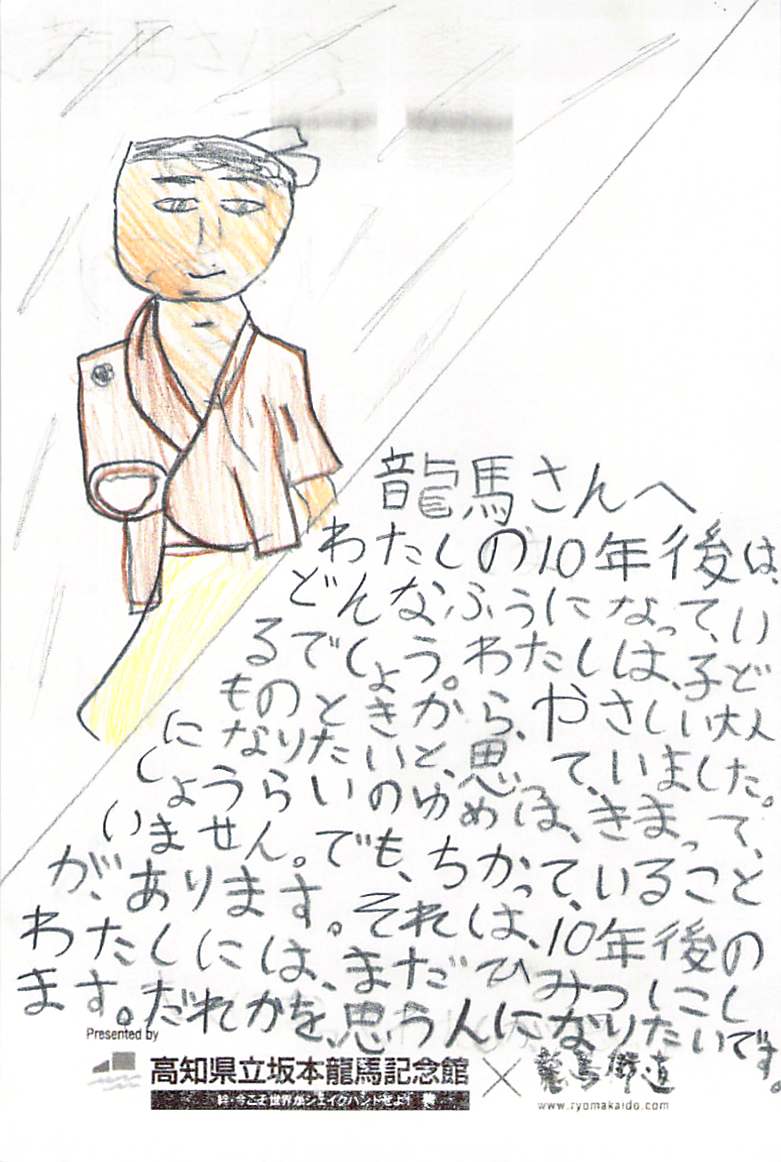 龍馬さんへ
わたしの10年後は、
どんなふうになって、い
るでしょう。わたしは、子ど
ものときから、やさしい大人
になりたいと、思って、いました。
しょうらいのゆめは、きまって、
いません。でも、ちかって、いること
が、あります。それは、10年後の
わたしには、まだひみつにし
ます。だれかを、思う人になりたいです。
Presented by
高知県立坂本龍馬記念館
絆・今こそ世界がシェイクハンドぜよ!
×
龍馬街道
www.ryomakaido.com